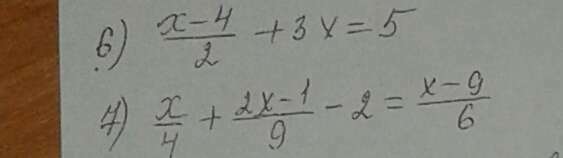 6) (x-4)/2 + 3x = 5
7) x/4 + (2x-1)/9 - 2 = (x-9)/6